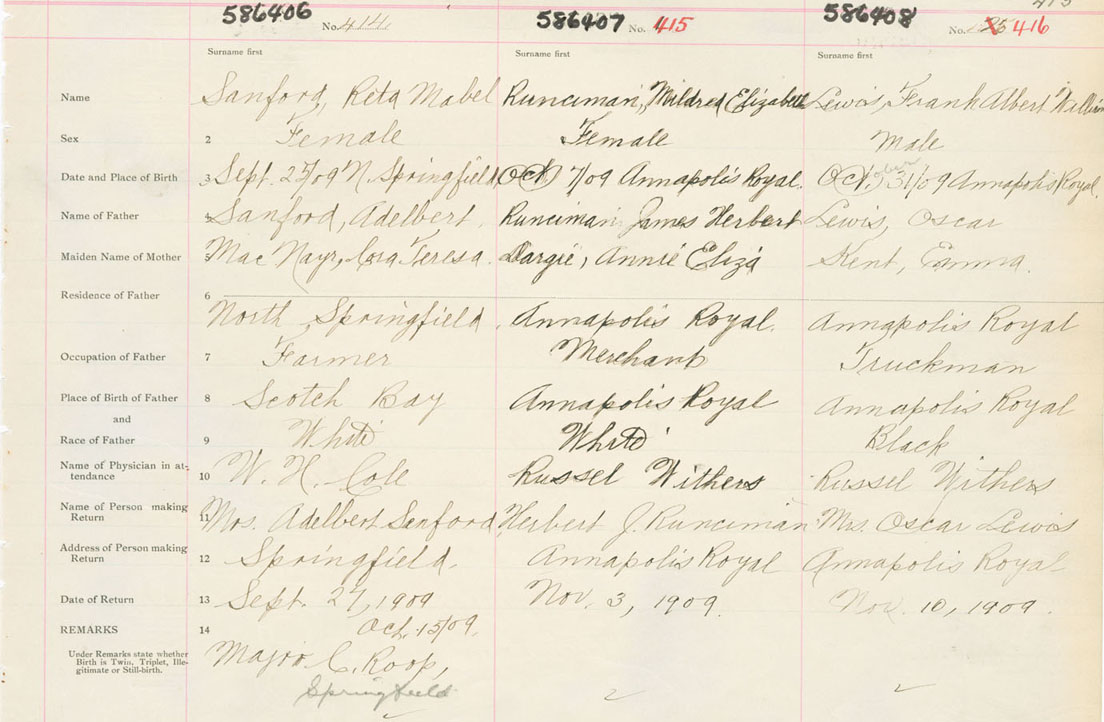 415
586406 No. 414 586407 No. 415 586408 No. 25 X 416
Surname first Surname first Surname first
Name Sanford, Reta Mabel Runciman, Mildred Elizabeth Lewis, Frank Albert William
Sex 2 Female Female Male
Date and Place of Birth 3 Sept. 25/09 N. Springfield Oct 7/09 Annapolis Royal. Oct, ober 31/09 Annapolis Royal.
Name of Father 4 Sanford, Adelbert Runciman James Herbert Lewis, Oscar
Maiden Name of Mother 5 Mac Nayr, Cora Teresa. Dargie, Annie Eliza Kent, Emma.
Residence of Father 6
North Springfield Annapolis Royal. Annapolis Royal
Occupation of Father 7 Farmer Merchant Truckman
Place of Birth of Father 8 Scotch Bay Annapolis Royal Annapolis Royal
and
Race of Father 9 White White Black
Name of Physician in at-
tendance 10 W. H. Cole Russel Withers Russel Withers
Name of Person making
Return 11 Mrs. Adelbert Sanford Herbert J. Runciman Mrs. Oscar Lewis
Address of Person making
Return 12 Springfield. Annapolis Royal Annapolis Royal
Date of Return 13 Sept. 27, 1909 Nov. 3, 1909. Nov. 10, 1909.
REMARKS 14 Oct. 15/09.
Under Remarks state whether
Birth is Twin, Triplet, Ille-
gitimate or Still-birth.
Major C. Roop,
Springfield